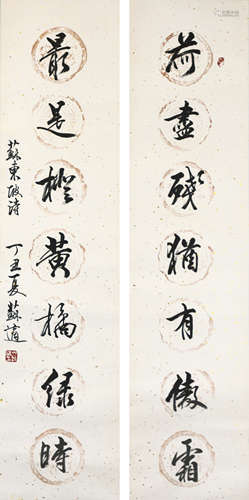 荷盡殘猶有傲霜
最是橙黃橘綠時
蘇東坡詩
丁丑夏蘇適